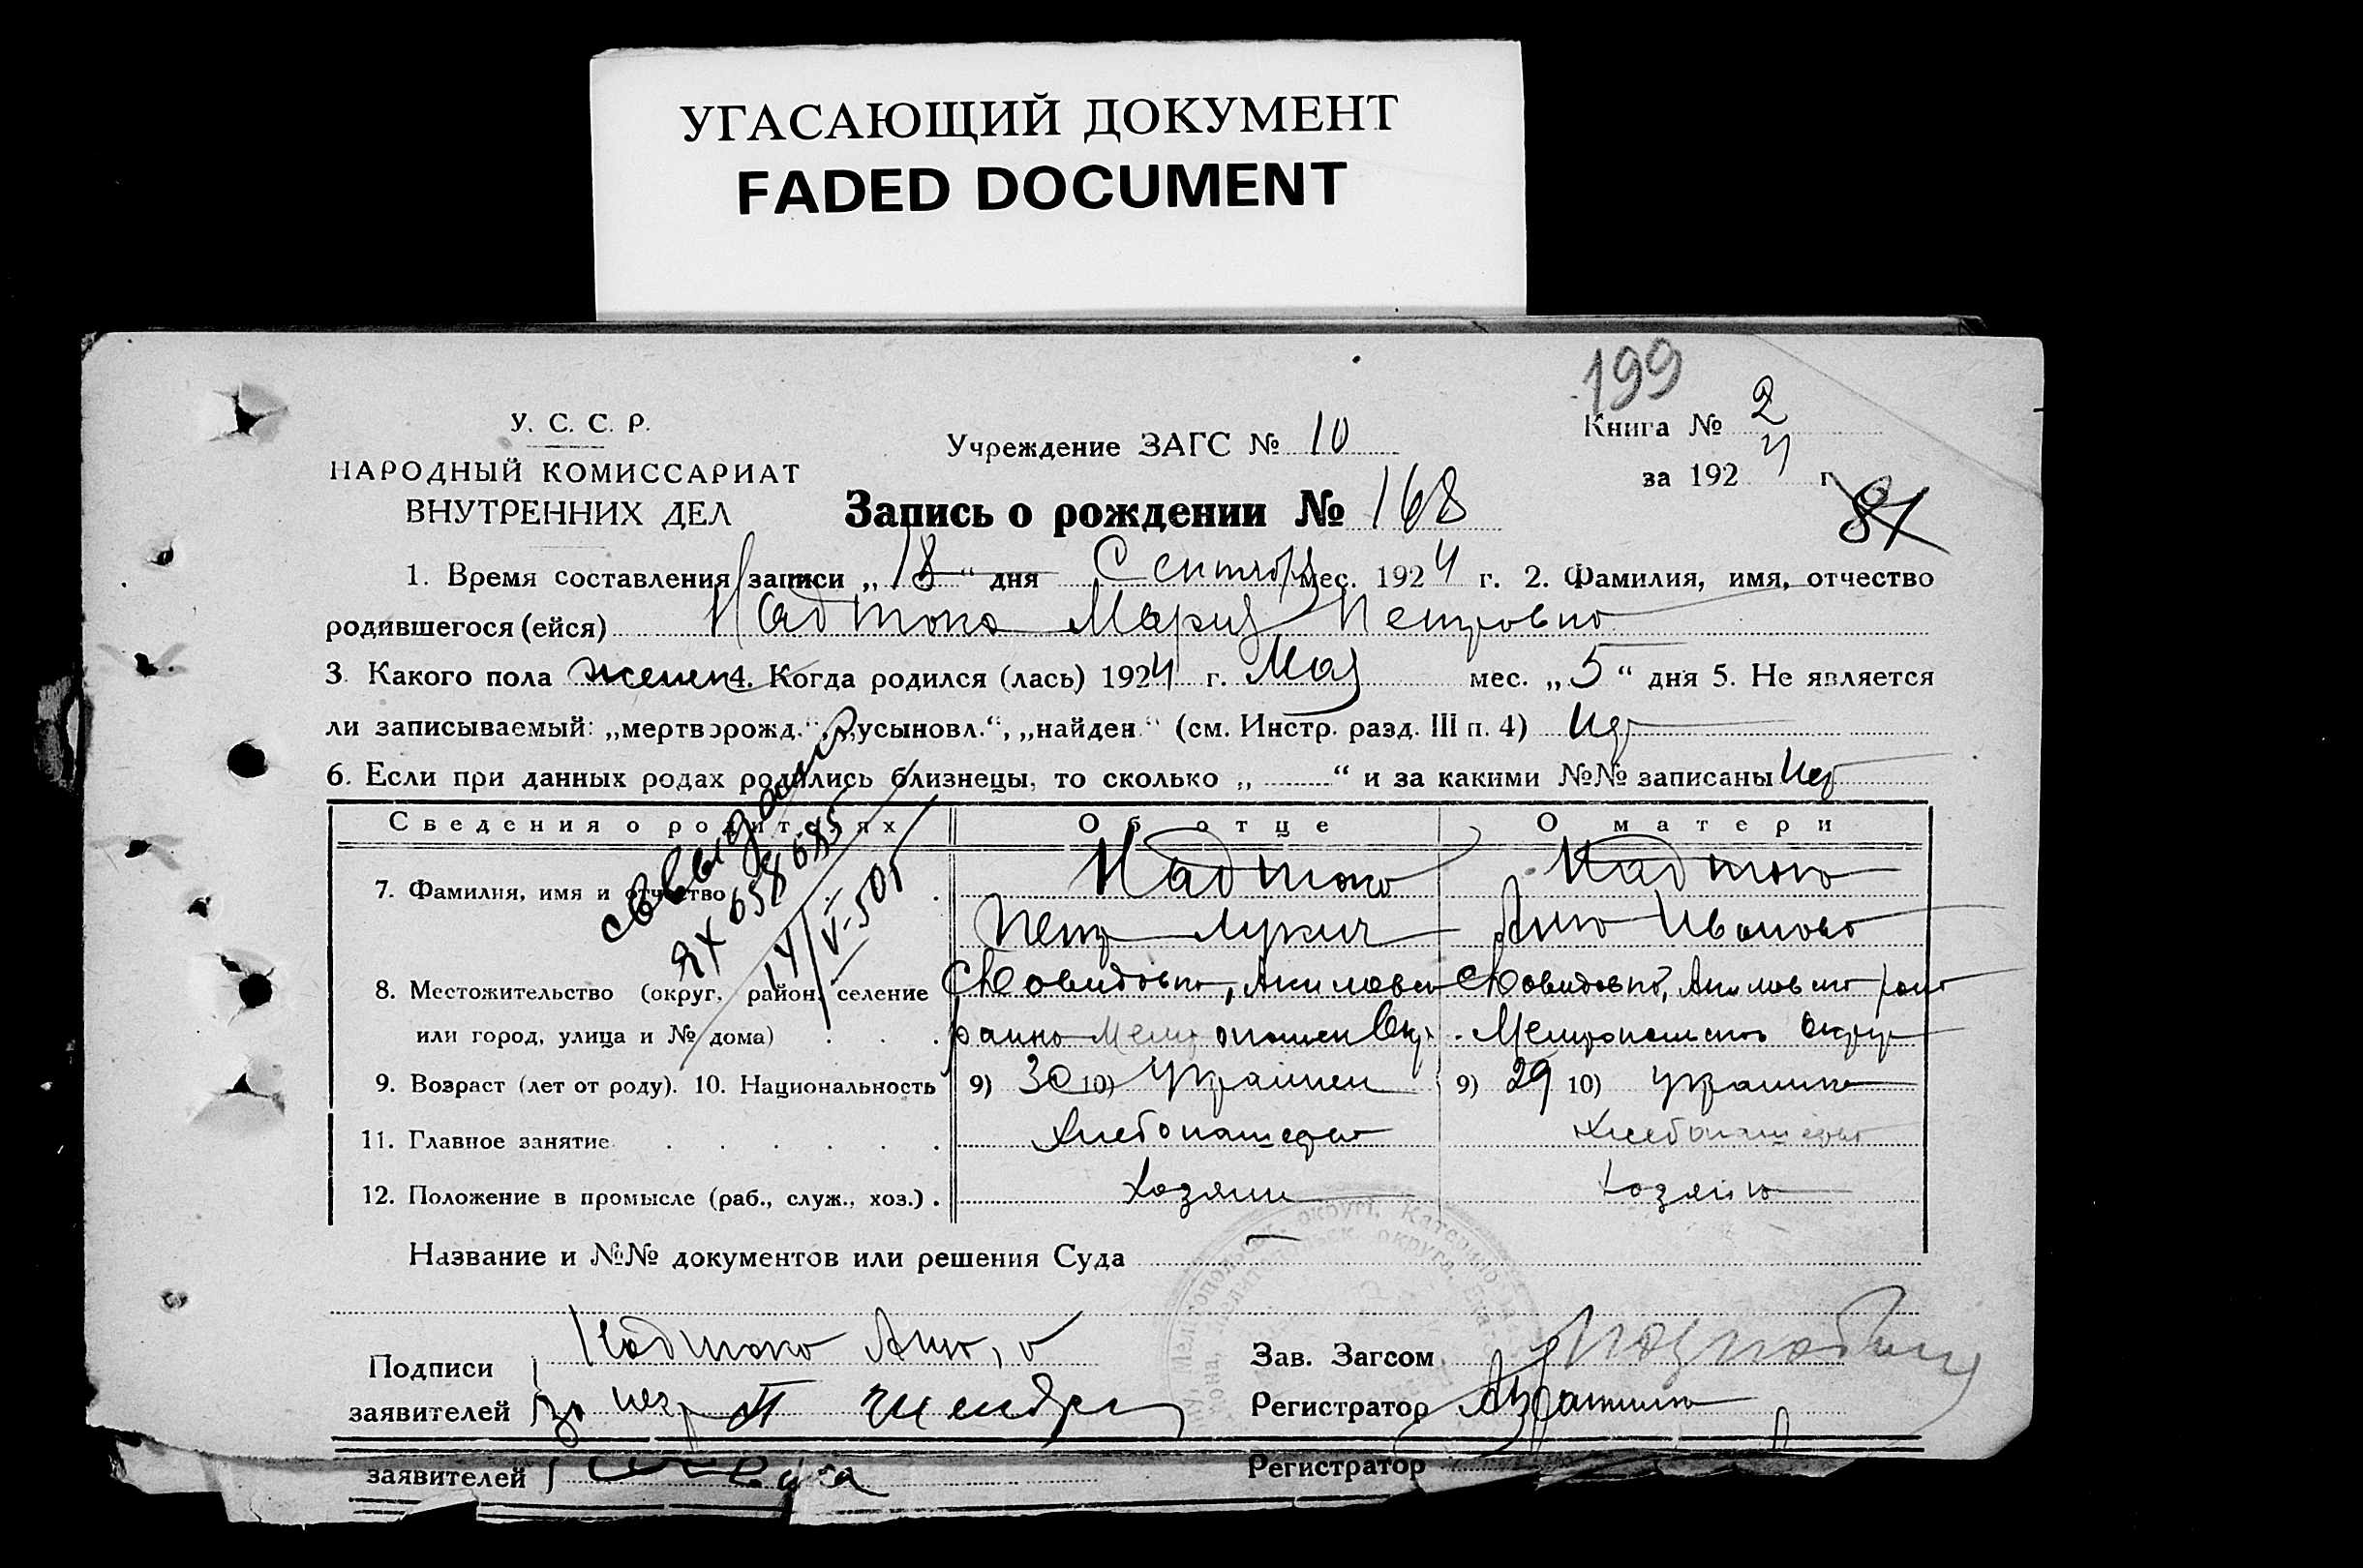 УГАСАЮЩИЙ ДОКУМЕНТ
FADED DOCUMENT
199
У. С. С. Р.
НАРОДНЫЙ КОМИССАРИАТ
ВНУТРЕННИХ ДЕЛ
Учреждение ЗАГС № 10
Книга № 2
за 1924 г.
81
Запись о рождении № 168
1. Время составления записи „18“ дня Сентября мес. 1924 г. 2. Фамилия, имя, отчество
родившегося (ейся) Надтока Мария Петровна
3. Какого пола женск 4. Когда родился (лась) 1924 г. Мая мес. „5“ дня 5. Не является
ли записываемый: „мертворожд.“, „усыновл.“, „найден.“ (см. Инстр. разд. III п. 4) Нет
6. Если при данных родах родились близнецы, то сколько „ “ и за какими №№ записаны Нет
Сведения о родителях Об отце О матери
7. Фамилия, имя и отчество Надтока Надтока
Петр Лукич Анна Ивановна
8. Местожительство (округ, район, селение Давидовка, Акимовск Давидовка, Акимовского район
или город, улица и № дома) района Мелитопольск Окр. Мелитопольского округа
9. Возраст (лет от роду). 10. Национальность 9) 30 10) Украинец 9) 29 10) украинка
11. Главное занятие Хлебопашество Хлебопашество
12. Положение в промысле (раб., служ., хоз.) Хозяин Хозяйка
Название и №№ документов или решения Суда —
Подписи Надтока Анна, а
заявителей за негр
Зав. Загсом
Регистратор
заявителей
Регистратор